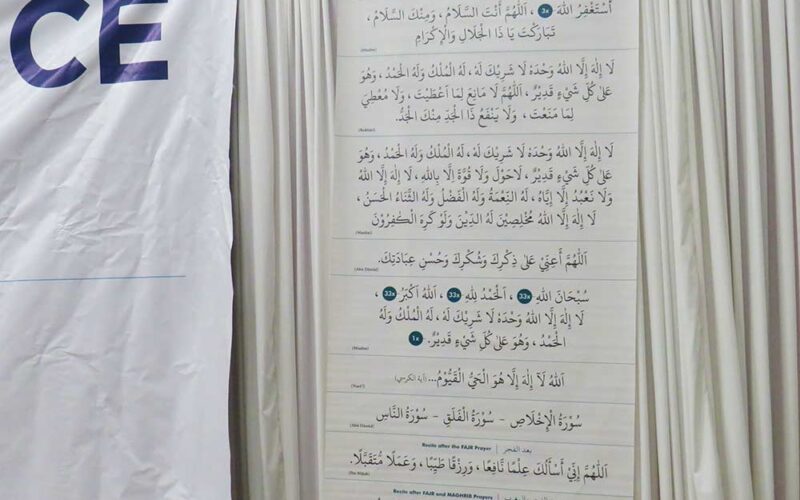 CE
أَسْتَغْفِرُ اللهَ 3x ، اَللّٰهُمَّ أَنْتَ السَّلَامُ ، وَمِنْكَ السَّلَامُ ،
تَبَارَكْتَ يَا ذَا الْجَلَالِ وَالْإِكْرَامِ
(Muslim)
لَا إِلٰهَ إِلَّا اللهُ وَحْدَهُ لَا شَرِيْكَ لَهُ ، لَهُ الْمُلْكُ وَلَهُ الْحَمْدُ ، وَهُوَ
عَلىٰ كُلِّ شَيْءٍ قَدِيْرٌ ، اَللّٰهُمَّ لَا مَانِعَ لِمَا أَعْطَيْتَ ، وَلَا مُعْطِيَ
لِمَا مَنَعْتَ ، وَلَا يَنْفَعُ ذَا الْجَدِّ مِنْكَ الْجَدُّ.
(Bukhari)
لَا إِلٰهَ إِلَّا اللهُ وَحْدَهُ لَا شَرِيْكَ لَهُ ، لَهُ الْمُلْكُ وَلَهُ الْحَمْدُ ، وَهُوَ
عَلىٰ كُلِّ شَيْءٍ قَدِيْرٌ ، لَاحَوْلَ وَلَا قُوَّةَ إِلَّا بِاللهِ ، لَا إِلٰهَ إِلَّا اللهُ
وَلَا نَعْبُدُ إِلَّا إِيَّاهُ ، لَهُ النِّعْمَةُ وَلَهُ الْفَضْلُ وَلَهُ الثَّنَاءُ الْحَسَنُ ،
لَا إِلٰهَ إِلَّا اللهُ مُخْلِصِيْنَ لَهُ الدِّيْنَ وَلَوْ كَرِهَ الْكٰفِرُوْنَ
(Muslim)
اَللّٰهُمَّ أَعِنِّيْ عَلىٰ ذِكْرِكَ وَشُكْرِكَ وَحُسْنِ عِبَادَتِكَ.
(Abu Dāwūd)
سُبْحَانَ اللهِ 33x ، اَلْحَمْدُ لِلهِ 33x ، اَللهُ أَكْبَرُ 33x ،
لَا إِلٰهَ إِلَّا اللهُ وَحْدَهُ لَا شَرِيْكَ لَهُ ، لَهُ الْمُلْكُ وَلَهُ
الْحَمْدُ ، وَهُوَ عَلىٰ كُلِّ شَيْءٍ قَدِيْرٌ. 1x
(Muslim)
اَللهُ لَآ إِلٰهَ إِلَّا هُوَ الْحَيُّ الْقَيُّوْمُ... (آية الكرسي)
(Nasā'ī)
سُوْرَةُ الْإِخْلَاصِ - سُوْرَةُ الْفَلَقِ - سُوْرَةُ النَّاسِ
(Abu Dāwūd)
Recite after the FAJR Prayer | بعد الفجر
اَللّٰهُمَّ إِنِّيْ أَسْأَلُكَ عِلْمًا نَافِعًا ، وَرِزْقًا طَيِّبًا ، وَعَمَلًا مُتَقَبَّلًا.
(Ibn Mājah)
Recite after FAJR and MAGHRIB Prayers